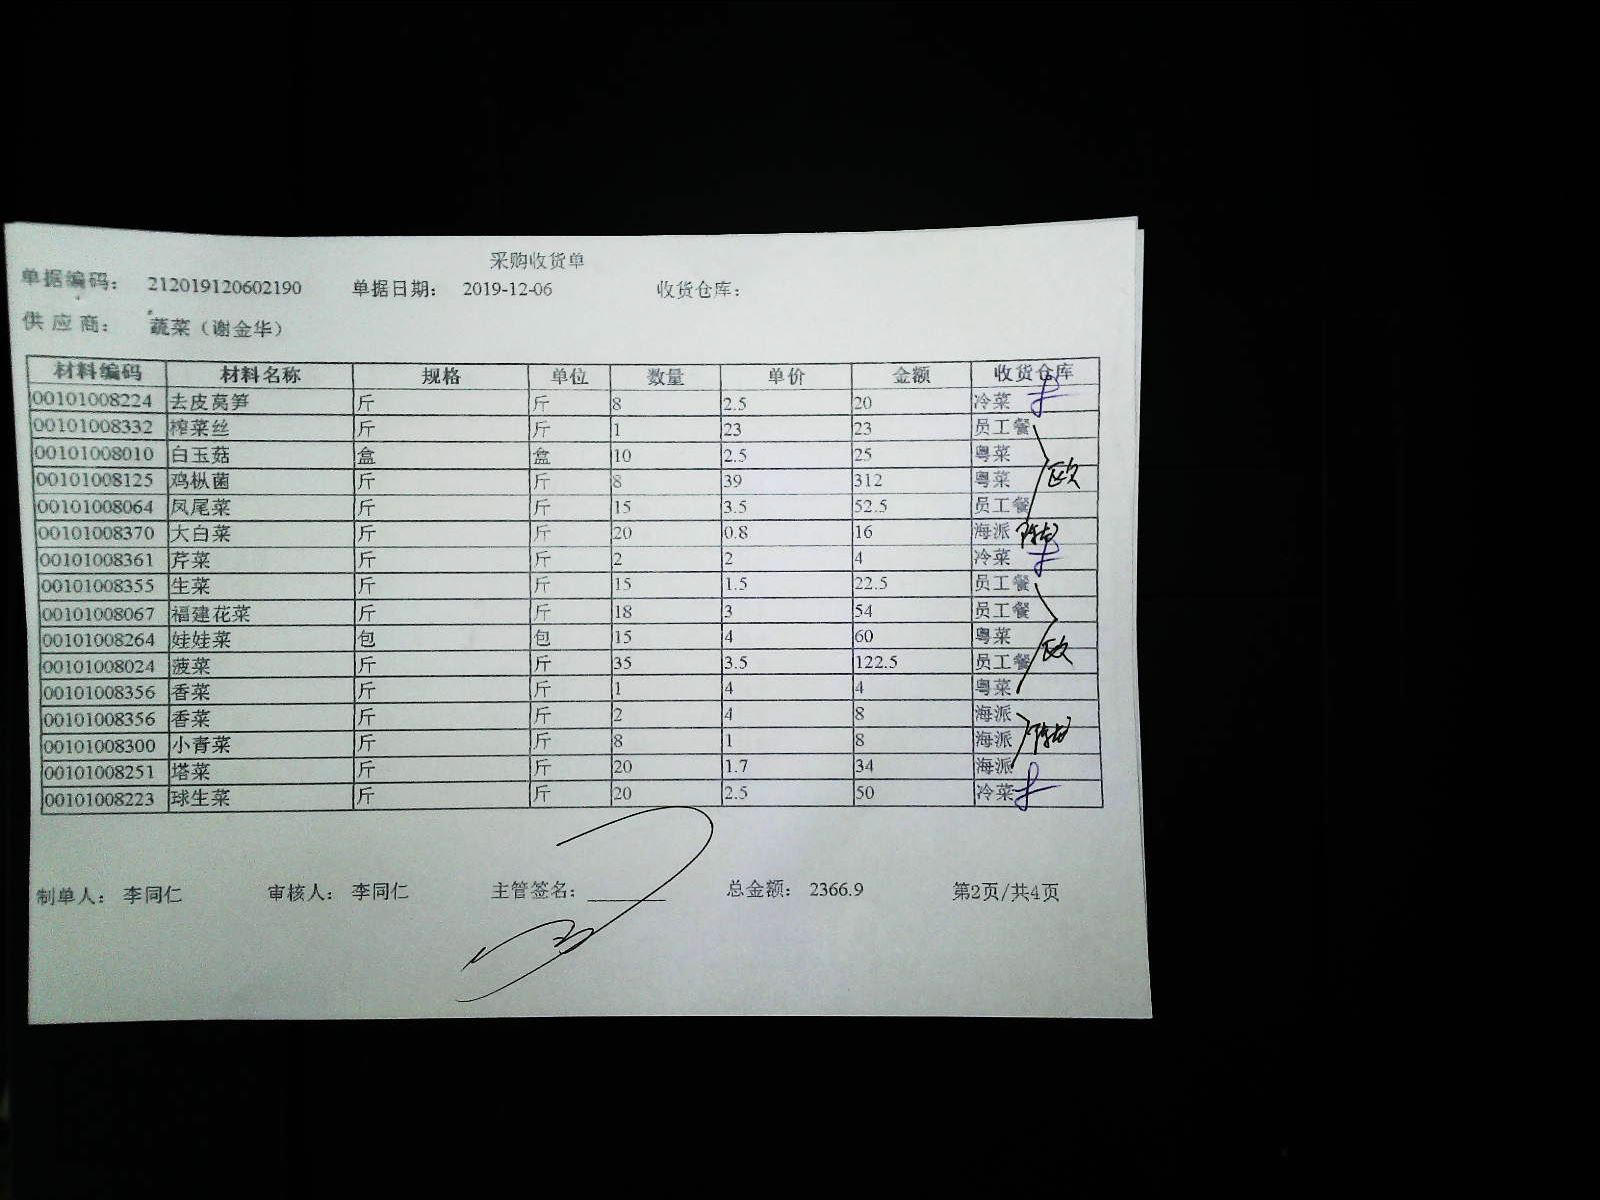 采购收货单
单据编码： 212019120602190 单据日期： 2019-12-06 收货仓库：
供应商： 蔬菜（谢金华）
材料编码 材料名称 规格 单位 数量 单价 金额 收货仓库
00101008224 去皮莴笋 斤 斤 8 2.5 20 冷菜
00101008332 榨菜丝 斤 斤 1 23 23 员工餐
00101008010 白玉菇 盒 盒 10 2.5 25 粤菜
00101008125 鸡枞菌 斤 斤 8 39 312 粤菜 欧
00101008064 凤尾菜 斤 斤 15 3.5 52.5 员工餐
00101008370 大白菜 斤 斤 20 0.8 16 海派
00101008361 芹菜 斤 斤 2 2 4 冷菜
00101008355 生菜 斤 斤 15 1.5 22.5 员工餐
00101008067 福建花菜 斤 斤 18 3 54 员工餐
00101008264 娃娃菜 包 包 15 4 60 粤菜
00101008024 菠菜 斤 斤 35 3.5 122.5 员工餐 欧
00101008356 香菜 斤 斤 1 4 4 粤菜
00101008356 香菜 斤 斤 2 4 8 海派
00101008300 小青菜 斤 斤 8 1 8 海派
00101008251 塔菜 斤 斤 20 1.7 34 海派
00101008223 球生菜 斤 斤 20 2.5 50 冷菜
制单人： 李同仁 审核人： 李同仁 主管签名： 总金额： 2366.9 第2页/共4页